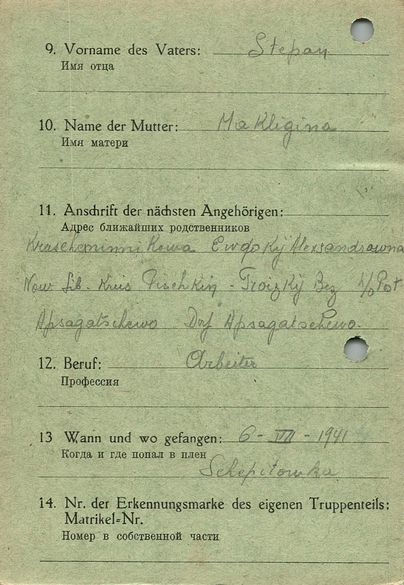 9. Vorname des Vaters: Stepan
Имя отца
10. Name der Mutter: Makligina
Имя матери
11. Anschrift der nächsten Angehörigen:
Адрес ближайших родственников
Krascheninnikowa Ewdokij Alexsandrowna
Now Sib. Kreis - Troizkij Bez Post
Apsagatschewo Drf Apsagatschewo.
12. Beruf: Arbeiter
Профессия
13 Wann und wo gefangen: 6 - VII - 1941
Когда и где попал в плен
Schepitowka
14. Nr. der Erkennungsmarke des eigenen Truppenteils:
Matrikel-Nr.
Номер в собственной части